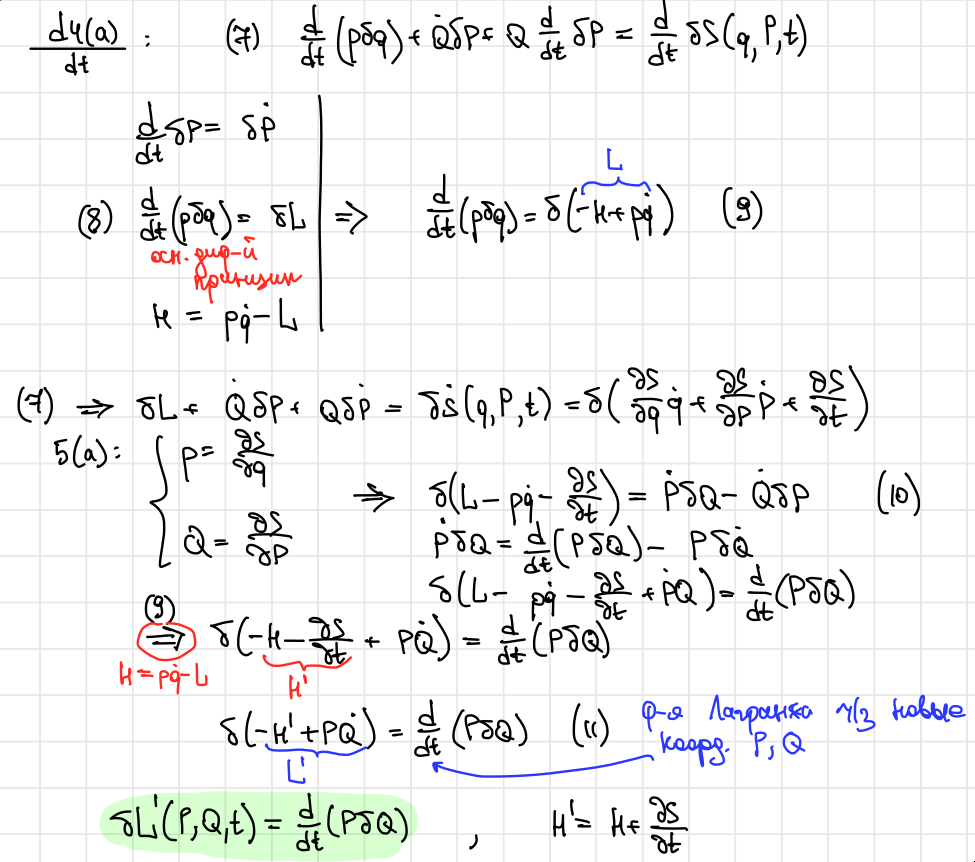 d4(a)/dt : (7) d/dt (pδq) + Q̇δP + Q d/dt δP = d/dt δS(q, P, t)
d/dt δP = δṖ
L
(8) d/dt (pδq) = δL ⇒ d/dt (pδq) = δ(-H + pq̇) (9)
осн. диф-й
принцип
H = pq̇ - L
(7) ⇒ δL + Q̇δP + QδṖ = δṠ(q, P, t) = δ(∂S/∂q q̇ + ∂S/∂P Ṗ + ∂S/∂t)
5(a): { p = ∂S/∂q
⇒ δ(L - pq̇ - ∂S/∂t) = ṖδQ - Q̇δP (10)
Q = ∂S/∂P
ṖδQ = d/dt (PδQ) - PδQ̇
δ(L - pq̇ - ∂S/∂t + PQ̇) = d/dt (PδQ)
(9)
⇒ δ(-H - ∂S/∂t + PQ̇) = d/dt (PδQ)
H = pq̇ - L
H'
δ(-H' + PQ̇) = d/dt (PδQ) (11)
L'
ф-я Лагранжа ч/з новые
коорд. P, Q
δL'(P, Q, t) = d/dt (PδQ) , H' = H + ∂S/∂t